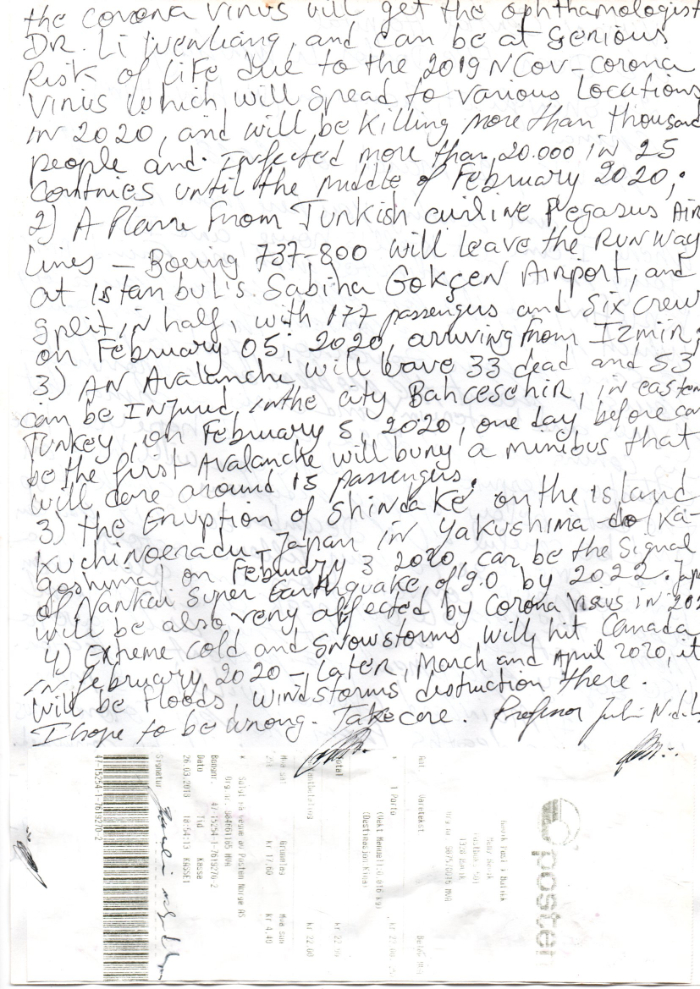 the corona virus will get the ophthamologist
DR. Li Wenliang, and can be at serious
Risk of Life due to the 2019 NCov-corona
Virus which will spread to various Locations
in 2020, and will be killing more than thousand
people and Infected more than 20.000 in 25
Countries until the middle of February 2020;
2) A Plane From Turkish airline Pegasus Air
Lines - Boeing 737-800 will leave the RUNWAY
at Istanbul's Sabiha Gokçen Airport, and
split in half, with 177 passengers and six crew
on February 05, 2020, arriving from Izmir;
3) AN Avalanche will leave 33 dead and 53
can be Injured, in the city Bahcesehir, in eastern
Turkey, on February 5, 2020, one day before can
be the first Avalanche will bury a minibus that
will care around 15 passengers.
3) the Eruption of Shindake on the island
Kuchinoerabu-Japan in Yakushima (Ka-
goshima) on February 3 2020, can be the signal
of Nankai Super Earthquake of 9.0 by 2022.
will be also very affected by Corona Virus in
4) Extreme cold and snowstorms will hit Canada
in February, 2020 - Later, March and April 2020, it
will be Floods windstorms destruction there.
I hope to be wrong. Take care. Professor
posten
1 Porto
Dato Tid Kasse
26.03.2010 KASSE1
Signatur
47-15254-1-7619270-2